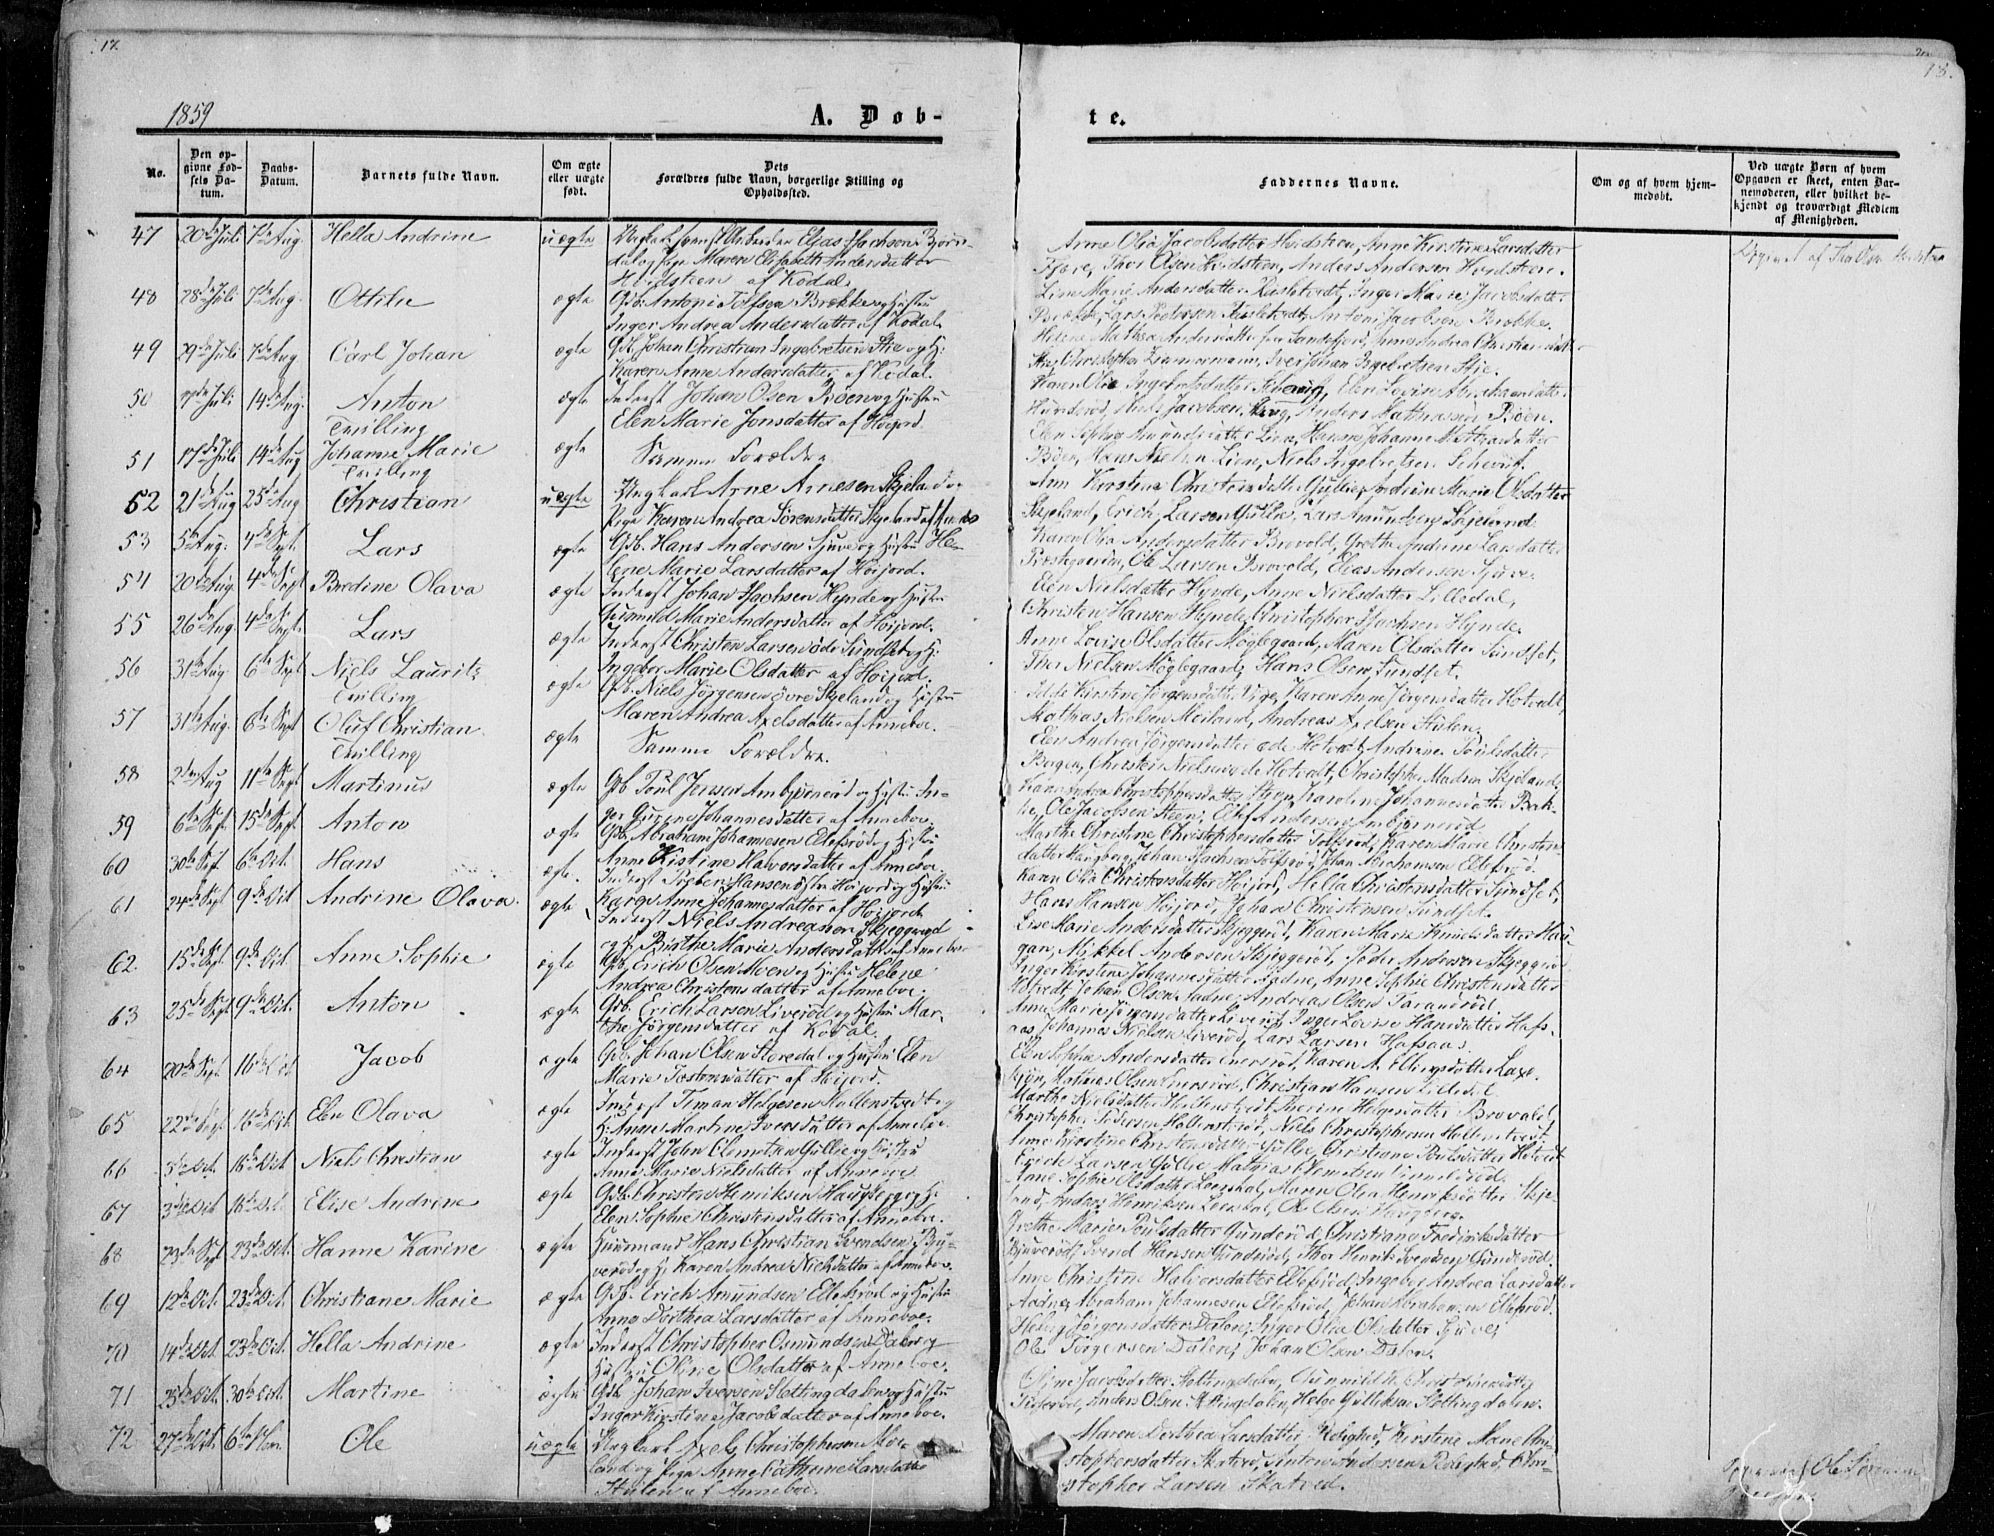 17.
18.
1859
A. Døb-
te.
No.
Den op-
givne Fød-
sels Da-
tum.
Daabs-
Datum.
Barnets fulde Navn.
Om ægte
eller uægte
født.
Dets
Forældres fulde Navn, borgerlige Stilling og
Opholdssted.
Faddernes Navne.
Om og af hvem hjem-
medøbt.
Ved uægte Børn af hvem
Opgaven er skeet, enten Bar-
nemoderen, eller hvilket be-
kjendt og troværdigt Medlem
af Menigheden.
47 20de Juli 7de Aug Hella Andrine uægte Elias Isachsen Bjørn-
dal og Pige Maren Elisabeth Andersdatter
Hvidsteen af Kodal.
Anne Olia Jacobsdatter Hvidsteen, Anne Kirstine Larsdatter
Thor Olsen Hvidsteen, Anders Andersen Hvidsteen.
48 28de Juli 7de Aug. Ottilie ægte Gdb. Antoni Brække og Hustru
Inger Andrea Andersdatter af Kodal.
Marie Andersdatter Inger Marie Jacobsdatter
Brække, Lars Pedersen Antoni Jacobsen Brække.
49 29de Juli 7de Aug Carl Johan ægte Gdb. Johan Christian Ingebretsen Skie og H.
Karen Anne Andersdatter af Kodal.
Helene Mathea Andersdatter fra Sandefjord, Andrea Christiansdatter
Skie, Christopher Zimmermann, Iver Johan Ingebretsen Skje.
50 17de Juli 14de Aug. Anton
Tvilling
ægte Inderst Johan Olsen Bøen og Hustru
Elen Marie Jonsdatter af Høijord.
Karen Olia Ingebretsdatter Elen Lovise Abrahamsdatter
Niels Jacobsen Anders Mathiassen Bøen.
51 17de Juli 14de Aug Johanne Marie
Tvilling
ægte Samme Forældre
Elen Sophie Amundsdatter Lien, Johanne Mathiasdatter
Bøen, Hans Lien, Niels Ingebretsen
52 21de Aug 25de Aug Christian uægte Ungkarl Arne Arnesen Skjeland og
Pige Karen Andrea Sørensdatter Skjeland af
Ann Kirstine Christensdatter Gullie, Andrine Marie Olsdatter
Skjeland, Erich Larsen Gullie, Lars Amundsen Skjeland
53 5te Aug. 4de Sept. Lars ægte Gdb. Hans Andersen Sjuve og Hustru He-
lene Marie Larsdatter af Høijord.
Karen Olia Andersdatter Brovold, Grethe Andrine Larsdatter
Præstegaarden, Ole Larsen Brovold, Elias Andersen Sjuve.
54 20de Aug. 4de Sept Bredine Olava ægte Inderst Johan Isachsen Hynde og Hustru
Gunnild Marie Andersdatter af Høijord.
Elen Nielsdatter Hynde, Anne Nielsdatter Lilledal,
Christen Hansen Hynde, Christopher Isachsen Hynde.
55 26de Aug. 4de Sept. Lars ægte Inderst Christen Larsen øde Sundset og H.
Ingebor Marie Olsdatter af Høijord.
Anne Lovise Olsdatter Møglegaard, Maren Olsdatter Sundset,
Thor Nielsen Møglegaard, Hans Olsen Sundset.
56 31te Aug. 6te Sept Niels Laurits
Tvilling
ægte Gdb. Niels Jørgensen øvre Skjeland og Hustru
Maren Andrea Axelsdatter af Anneboe.
Kirstine Jørgensdatter Karen Anne Jørgensdatter Hotvedt,
Mathias Nielsen Meiland, Andreas Axelsen Stulen.
57 31te Aug. 6te Sept Oluf Christian
Tvilling
ægte Samme Forældre.
Elen Andrea Jørgensdatter øde Hotvedt, Andrine Poulsdatter
Bergan, Christen Nielsen øde Hotvedt, Christopher Madsen Skjeland.
58 2den Aug 11te Sept Martinus ægte Gdb Poul Jensen Ambjørnrød og Hustru In-
ger Gurine Johannesdatter af Anneboe.
Andrea Christophersdatter Steen, Karoline Johannesdatter Bræk-
ke, Ole Jacobsen Steen, Oluf Andersen Ambjørnrød
59 6te Sept. 15de Sept. Anton ægte Gdb. Abraham Johannesen Ellefsrød og Hustru
Anne Kistine Halvorsdatter af Anneboe.
Marthe Christine Christophersdatter Tolfsrød, Karen Marie Christen-
datter Haugberg, Johan Isachsen Tolfsrød, Johan Abrahamsen Ellefsrød
60 30te Sept. 6te Oct. Hans ægte. Inderst Preben Hansen østre Høijord og Hustru
Karen Anne Johannesdatter af Høijord.
Karen Olia Christensdatter Høijord, Hella Christensdatter Sundset,
Hans Hansen Høijord, Johan Christensen Sundset.
61 24de Sept 9de Oct Andrine Olava. ægte Inderst Niels Andreassen Skjeggerød
og H. Birthe Marie Andersdatter af Anneboe
Lise Marie Andersdatter Skjeggerød, Karen Marie Knudsdatter Hau-
gan, Mikkel Andersen Skjeggerød, Peder Andersen Skjeggerød
62 15de Sept 9de Oct. Anne Sophie ægte Gdb. Erich Olsen Moen og Hustru Helene
Andrea Christensdatter af Anneboe.
Inger Kirstine Johannesdatter Aadne, Anne Sophie Christensdatter
Hotvedt, Johan Olsen Aadne, Andreas Olsen Tarandrød.
63 25de Sept 9de Oct. Anton ægte Gdb. Erich Larsen Liverød og Hustru Mar-
the Jørgensdatter af Kodal.
Anne Marie Jørgensdatter Liverød, Inger Lovise Hansdatter Hafs-
aas, Johannes Nielsen Liverød, Lars Larsen Hafsaas.
64 20de Sept. 16de Oct Jacob ægte Gdb. Johan Olsen Storedal og Hustru Elen
Marie Tostensdatter af Høijord.
Elen Sophie Andersdatter Enersrød, Karen A. Ellingsdatter Laxe-
skjøn, Mathias Olsen Enersrød, Christian Hansen Lilledal
65 22de Sept. 16de Oct. Elen Olava ægte Inderst Timan Helgesen Hallenstvedt og
H. Anne Martine Iversdatter af Anneboe.
Marthe Nielsdatter Hallenstvedt, Helgesdatter Brovald,
Christopher Pedersen Hallenstvedt, Niels Christophersen Hallenstvedt.
66 5te Oct. 16de Oct Niels Christian ægte Inderst John Clemetsen Gullie og Hustru
Anne Marie Nielsdatter af Anneboe
Anne Kirstine Christensdatter Gullie, Christiane Poulsdatter Hotvedt
Erich Larsen Gullie, Mathias Clemetsen
67 3die Oct 16de Oct. Elise Andrine ægte Gdb. Christen Henriksen Haugberg og H.
Elen Sophie Christensdatter af Anneboe.
Anne Sophie Olsdatter Leerskal, Maren Olia Henriksdatter Skje-
land, Anders Henriksen Leerskal, Ole Olsen Haugberg
68 23de Sept 23de Oct. Hanne Karine ægte Huusmand Hans Christian Svendsen Bju-
verød og H. Karen Andrea Nielsdatter af Anneboe.
Grethe Marie Poulsdatter Gunderød, Christiane Fredriksdatter
Bjuverød, Svend Hansen Gunderød, Thor Henrik Svendsen Gunderød.
69 12te Oct. 23de Oct. Christiane Marie ægte Gdb. Erich Amundsen Ellefsrød og Hustru
Anne Dorthea Larsdatter af Anneboe.
Anne Christine Halvorsdatter Ellefsrød, Ingebor Andrea Larsdatter
Aadne, Abraham Johannesen Ellefsrød, Johan Abrahamsen Ellefsrød.
70 14de Oct. 23de Oct. Hella Andrine ægte Inderst Christopher Osmundsen Dalen og
Hustru Oline Olsdatter af Anneboe.
Helvig Jørgensdatter Dalen, Inger Olia Olsdatter Sjuve,
Ole Jørgensen Dalen, Johan Olsen Dalen.
71 25de Oct. 30te Oct. Martine ægte Gdb. Johan Iversen Slottingdalen og Hustru
Inger Kirstine Jacobsdatter af Anneboe.
Oline Jacobsdatter Slottingdalen, Gunnild M. Christensdatter
Anders Olsen Slottingdalen, Helge Gulliksen Slottingdalen.
72 27de Oct. 6te Nov. Ole uægte Ungkarl Axel Christophersen Moe-
land og Pige Anne Cathrine Larsdatter
Stulen af Anneboe.
Maren Dorthea Larsdatter Rolighed, Kirstine Marie Chri-
stophersdatter Skatvet, Anton Andersen Rolighed, Chri-
stopher Larsen Skatved.
Opgivet af Thor Olsen Hvidsteen
Opgivet af Ole Sørensen